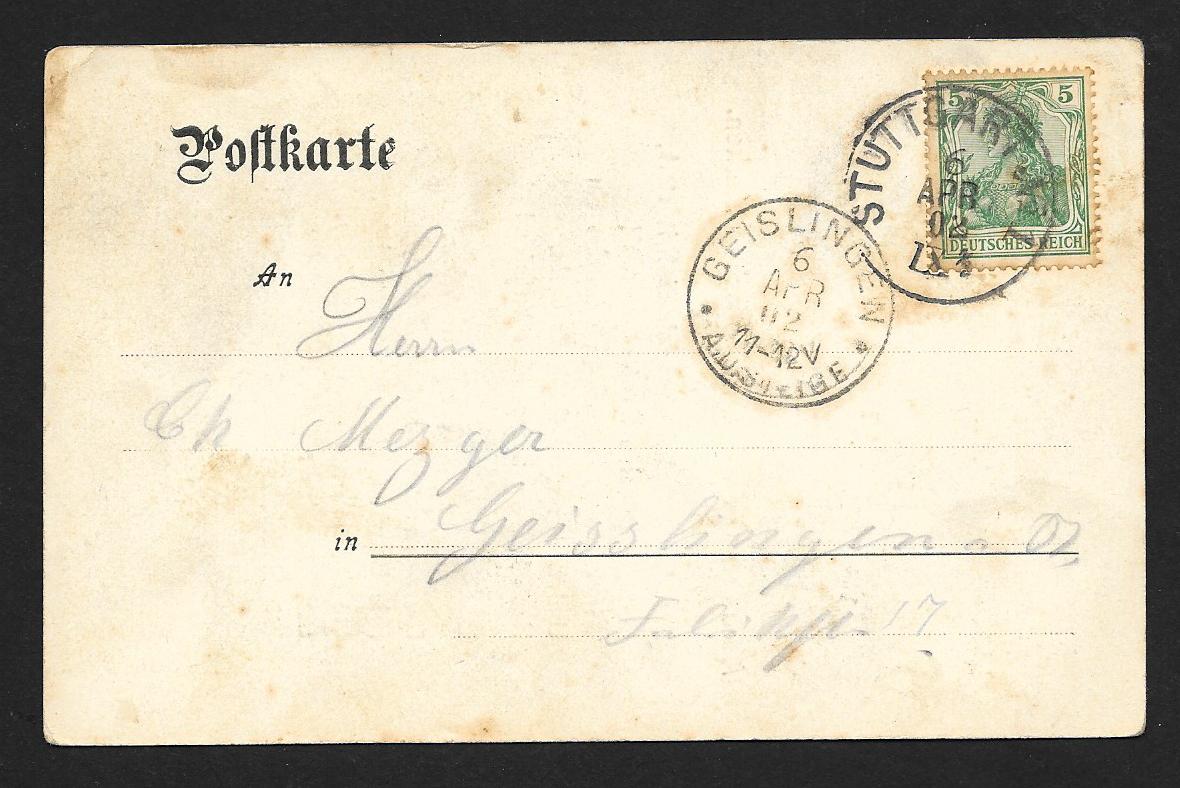 5 5
DEUTSCHES REICH
STUTTGART
6
APR
02
Postkarte
GEISLINGEN
6
APR
02
11-12V
An Herrn
Ch Mezger
in Geisslingen a
17